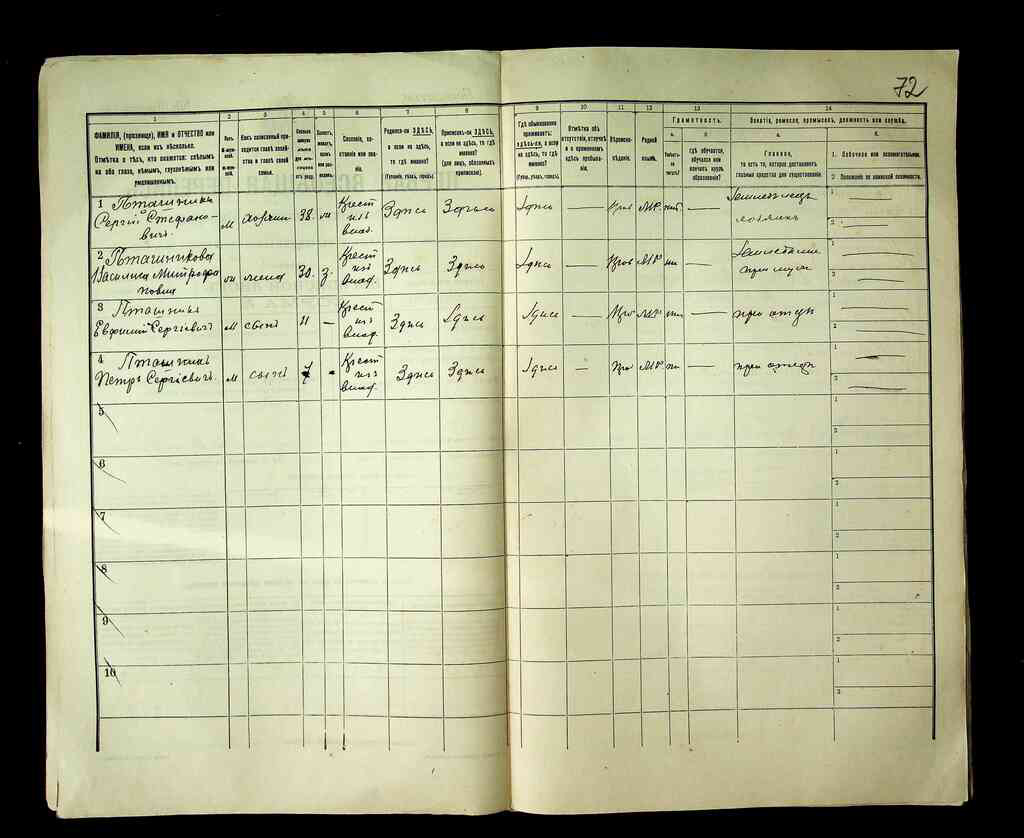 72
1
2
3
4
5
6
7
8
9
10
11
12
13
14
ФАМИЛІЯ, (прозвище), ИМЯ и ОТЧЕСТВО или
ИМЕНА, если ихъ нѣсколько.
Отмѣтка о тѣхъ, кто окажется: слѣпымъ
на оба глаза, нѣмымъ, глухонѣмымъ или
умалишеннымъ.
Полъ.
Какъ записанный при-
ходится главѣ хозяй-
ства и главѣ своей
семьи.
Сословіе, со-
стояніе или зва-
ніе.
Родился-ли ЗДѢСЬ,
а если не здѣсь,
то гдѣ именно?
(Губернія, уѣздъ, городъ).
Приписанъ-ли ЗДѢСЬ,
а если не здѣсь, то гдѣ
именно?
(Для лицъ, обязанныхъ
припискою).
Гдѣ обыкновенно
проживаетъ:
здѣсь-ли, а если
не здѣсь, то гдѣ
именно?
(Губер., уѣздъ, городъ).
Отмѣтка объ
отсутствіи, отлучкѣ
и о временномъ
здѣсь пребыва-
ніи.
Вѣроиспо-
вѣданіе.
Родной
языкъ.
Грамотность.
а.
Умѣетъ-
ли
читать?
б.
Гдѣ обучается,
обучался или
кончилъ курсъ
образованія?
Занятіе, ремесло, промыселъ, должность или служба.
а.
Главное,
то есть то, которое доставляетъ
главныя средства для существованія.
б.
1. Побочное или вспомогательное.
2. Положеніе по воинской повинности.
1 Пташникъ
Сергій Стефано-
вичъ.
м хозяинъ 38. ж Крест
изъ
влад. Здѣсь Здѣсь Здѣсь — Прав МР нѣт — Земледѣлецъ
хозяинъ
1
2
2 Пташникова
Василиса Митрофа
новна
жена 30. з. Крест
из
влад. Здѣсь Здѣсь Здѣсь — Прав МР — 
при муж
1
2
3 Пташникъ
Евфимій Сергіевичъ м сынъ 11 — Крест
изъ
влад. Здѣсь Здѣсь Здѣсь — МР — при отцѣ
1
2
4 Пташникъ
Петръ Сергіевичъ. м сынъ 7 - Крест
изъ
влад. Здѣсь Здѣсь Здѣсь — Прв МР — при отцѣ
1
2
5
1
2
6
1
2
7
1
2
8
1
2
9
1
2
10
1
2